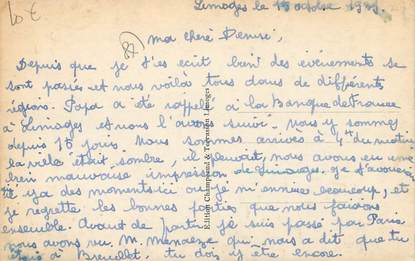 10 €
Limoges le 15 octobre 1939.
ma chère Denise,
Depuis que je t'ai ecrit bien des évènements se
sont passés et nous voilà tous dans de différents
régions. Papa a été rappellé à la Banque de France
à Limoges et nous l'avons suivi. Nous y sommes
depuis 15 jours. Nous sommes arrivés à 4h du matin
la ville était sombre, il pleuvait, nous avons eu une
bien mauvaise impression de Limoges. Je t'avouerai
il y a des moments ici où je m'ennuie beaucoup, et
je regrette les bonnes parties que nous faisions
ensemble. Avant de partir je suis passé par Paris
nous avons vu M. qui nous a dit que tu
étais à Breuillet, tu dois y être encore.
Edition Champeaud & Torcatis Limoges